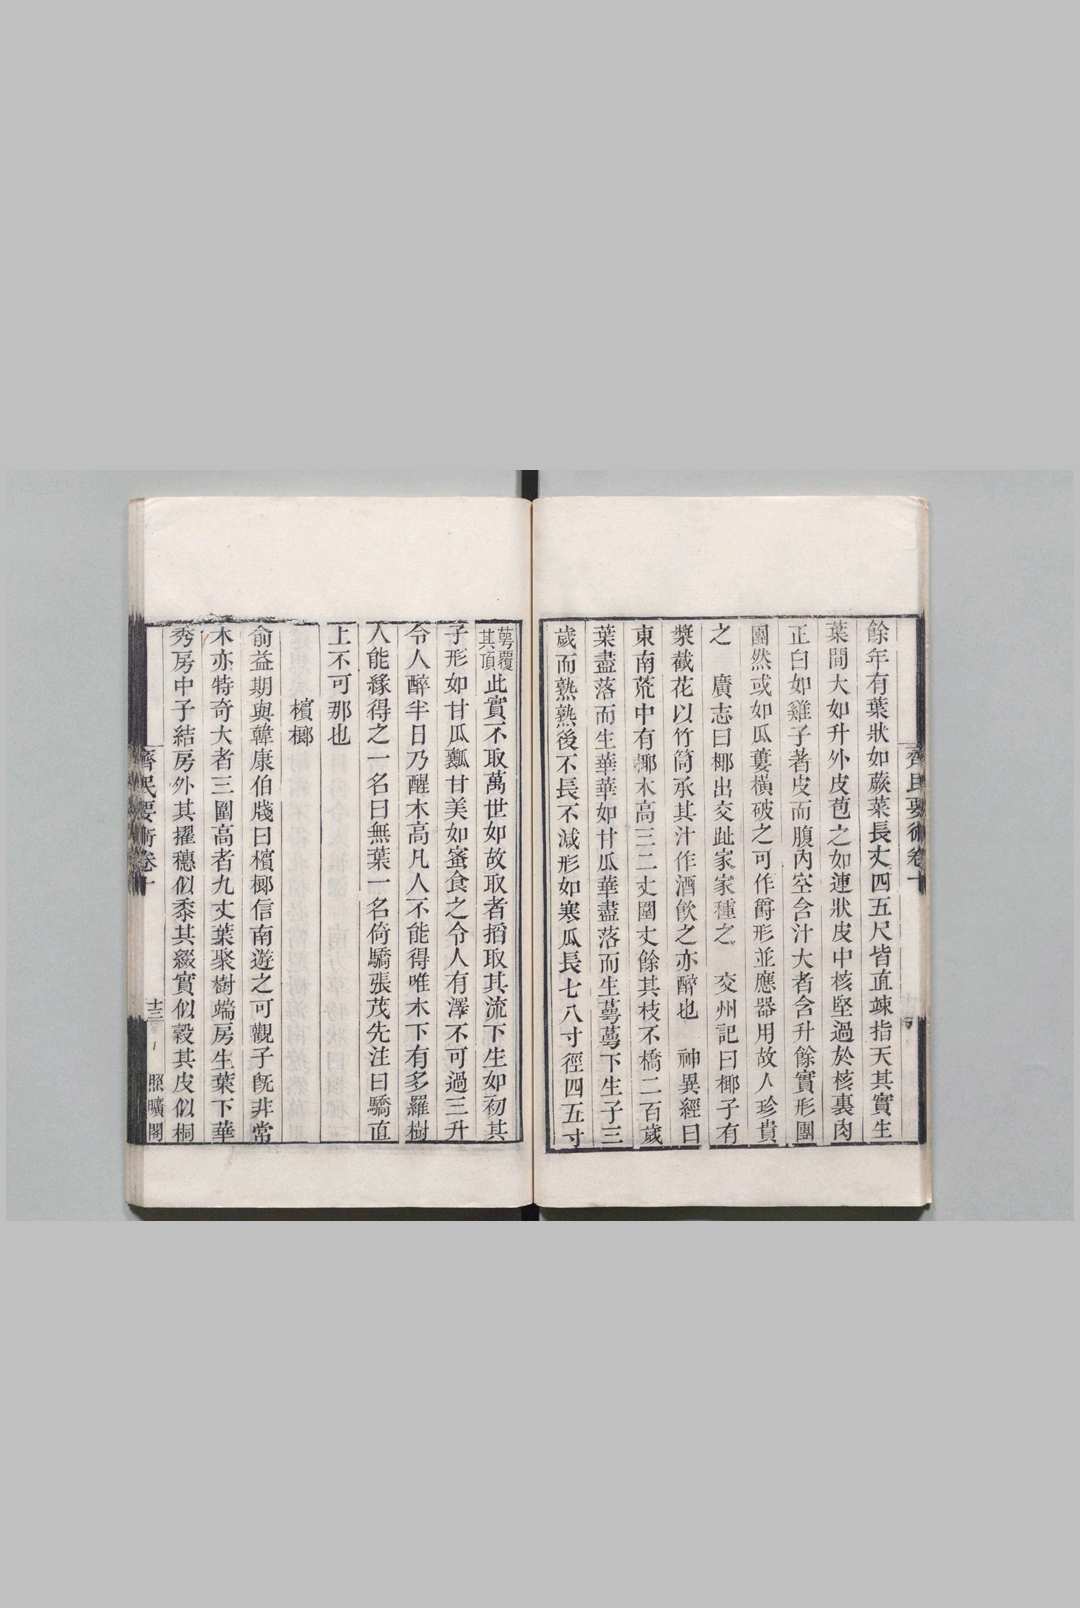 齊民要術卷十
餘年有葉狀如蕨菜長丈四五尺皆直竦指天其實生
葉間大如升外皮苞之如蓮狀皮中核堅過於核裏肉
正白如雞子著皮而腹內空含汁大者含升餘實形團
團然或如瓜蔞橫破之可作爵形並應器用故人珍貴
之　廣志曰椰出交趾家家種之　交州記曰椰子有
漿截花以竹筒承其汁作酒飲之亦醉也　神異經曰
東南荒中有椰木高三二丈圍丈餘其枝不橋二百歲
葉盡落而生華華如甘瓜華盡落而生萼萼下生子三
歲而熟熟後不長不減形如寒瓜長七八寸徑四五寸
萼覆
其頂
此實不取萬世如故取者掐取其流下生如初其
子形如甘瓜瓤甘美如蜜食之令人有澤不可過三升
令人醉半日乃醒木高凡人不能得唯木下有多羅樹
人能緣得之一名曰無葉一名倚驕張茂先注曰驕直
上不可那也
檳榔
俞益期與韓康伯牋曰檳榔信南遊之可觀子既非常
木亦特奇大者三圍高者九丈葉聚樹端房生葉下華
秀房中子結房外其擢穗似黍其綴實似穀其皮似桐
齊民要術卷十
十三
照曠閣